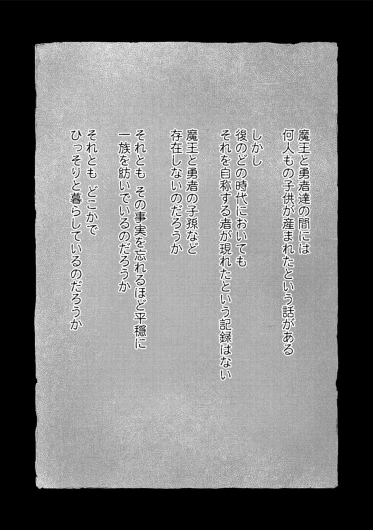 魔王と勇者達の間には
何人もの子供が産まれたという話がある
しかし
後のどの時代においても
それを自称する者が現れたという記録はない
魔王と勇者の子孫など
存在しないのだろうか
それとも その事実を忘れるほど平穏に
一族を紡いでいるのだろうか
それとも どこかで
ひっそりと暮らしているのだろうか